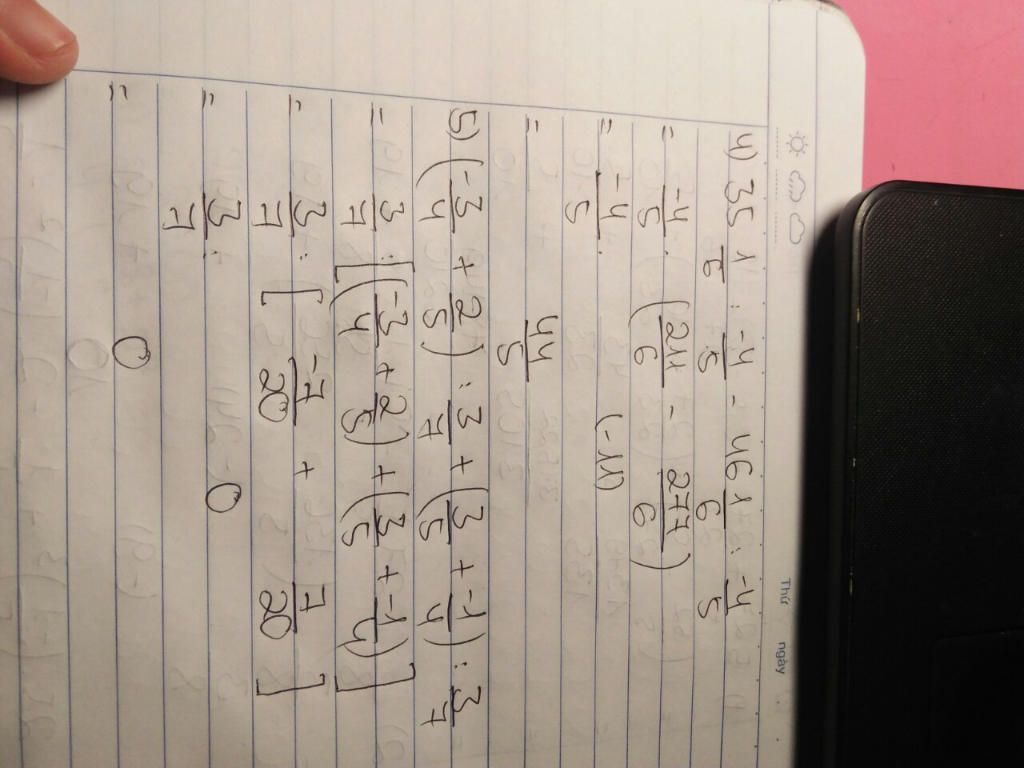 Thứ ngày
4) 35 1/6 : -4/5 - 46 1/6 : -4/5
= -4/5 . (211/6 - 277/6)
= -4/5 . (-11)
= 44/5
5) (-3/4 + 2/5) : 3/7 + (3/5 + -1/4) : 3/7
= 3/7 : [(-3/4 + 2/5) + (3/5 + -1/4)]
= 3/7 : [-7/20 + 7/20]
= 3/7 : 0
= 0